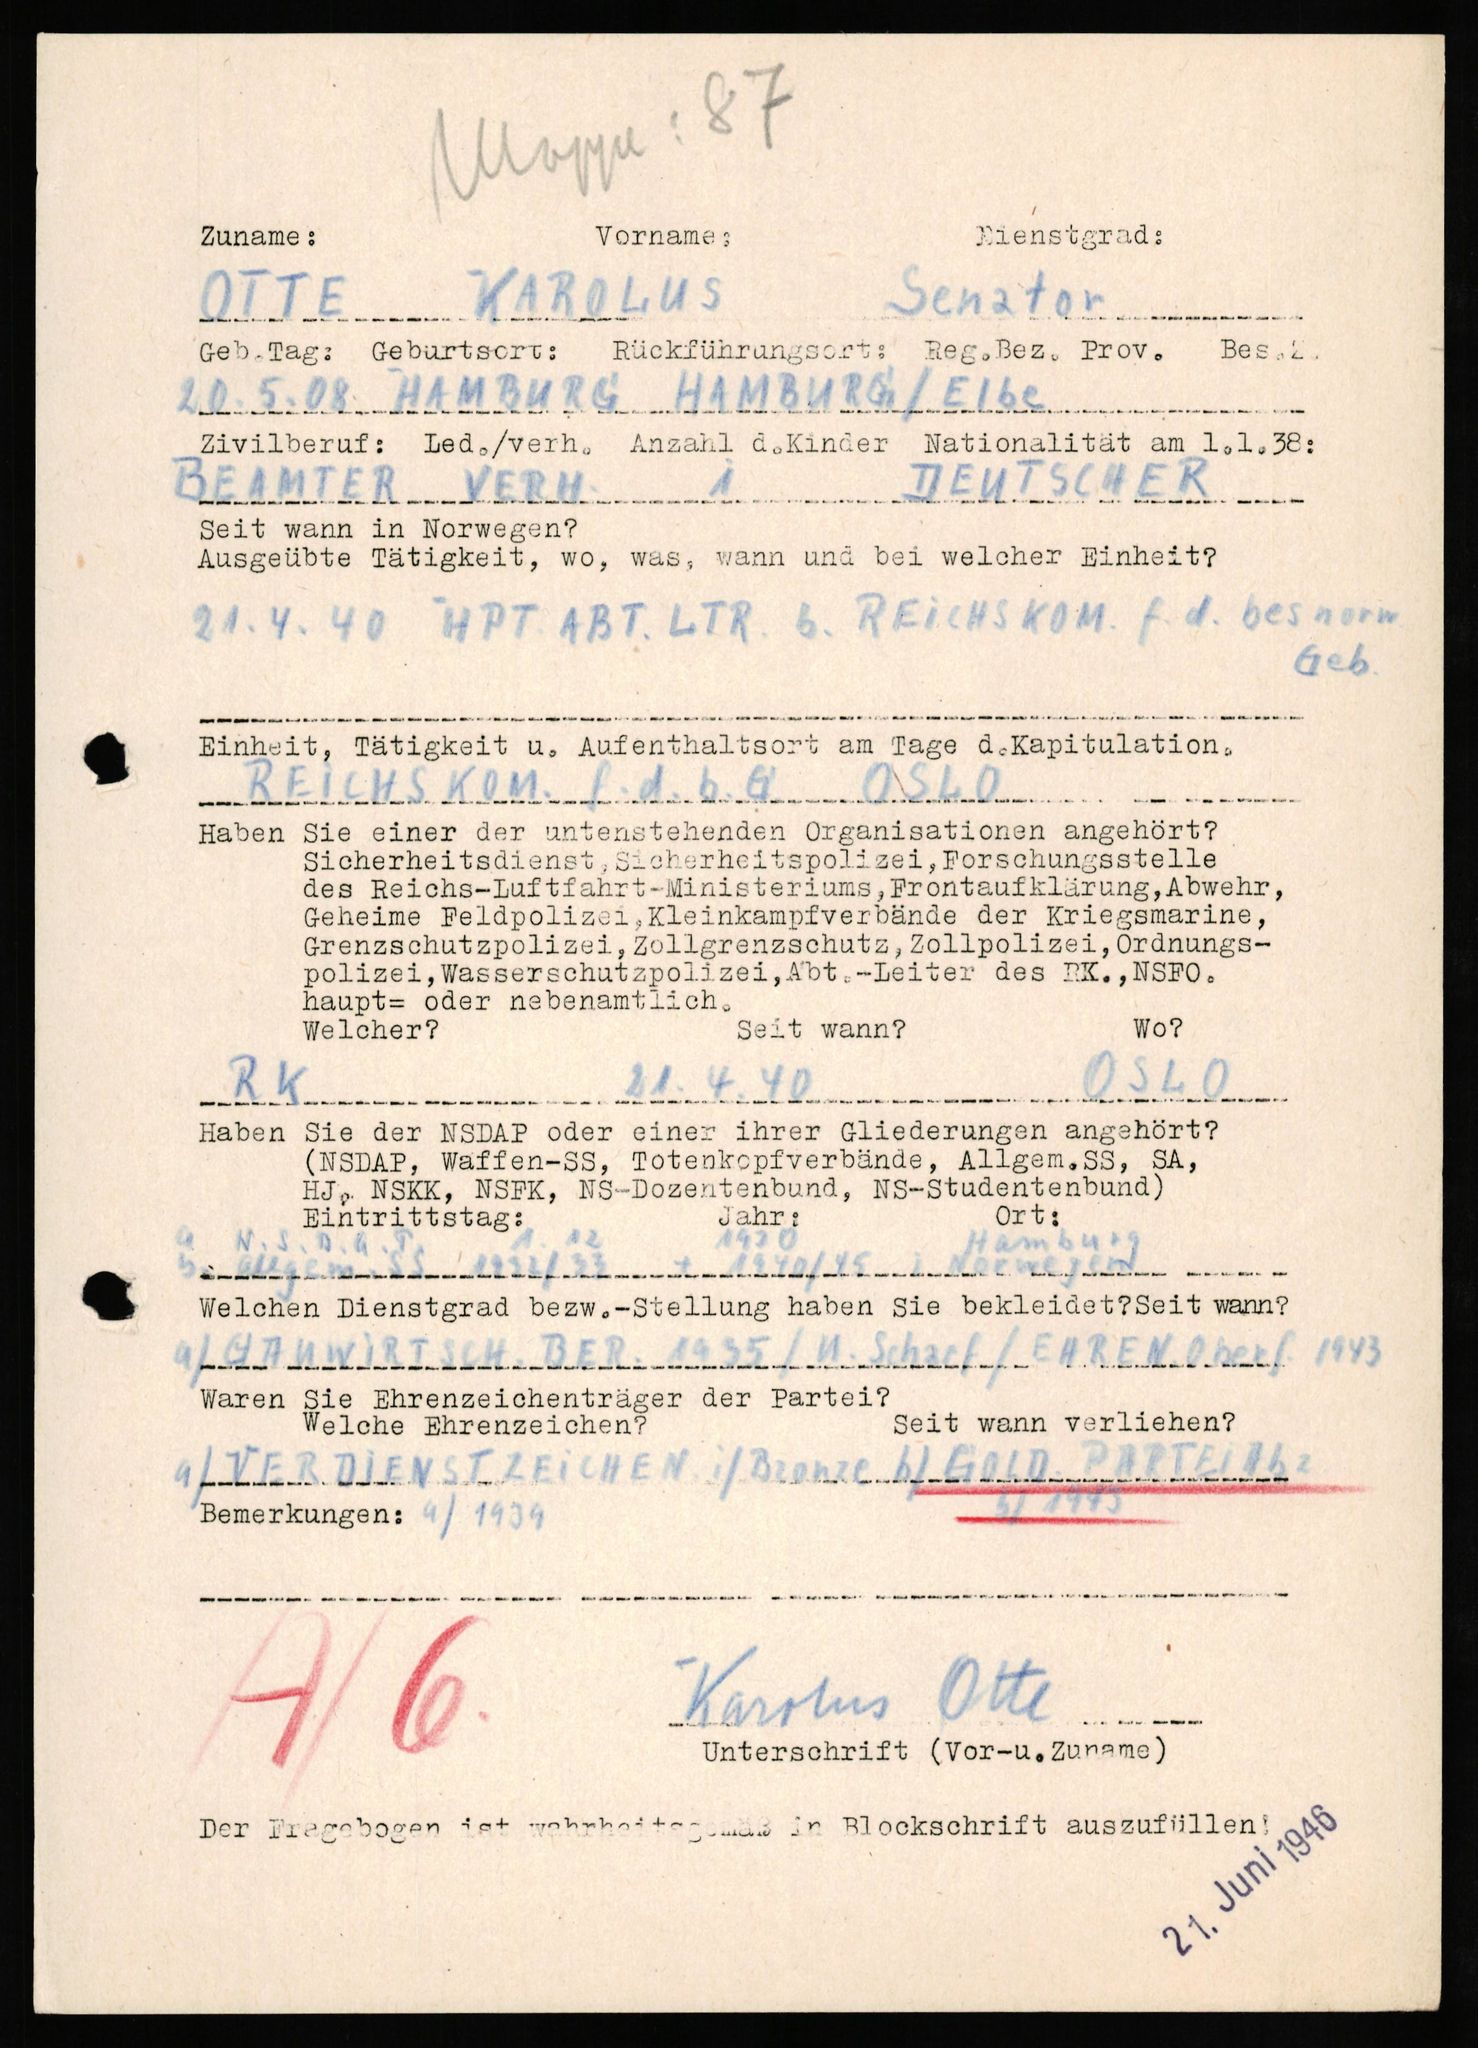 Mappe: 87
Zuname: Vorname: Dienstgrad:
OTTE KAROLUS Senator
Geb.Tag: Geburtsort: Rückführungsort: Reg.Bez. Prov. Bes.Z.
20.5.08 HAMBURG HAMBURG/Elbe
Zivilberuf: Led./verh. Anzahl d.Kinder Nationalität am 1.1.38:
BEAMTER VERH. 1 DEUTSCHER
Seit wann in Norwegen?
Ausgeübte Tätigkeit, wo, was, wann und bei welcher Einheit?
21.4.40 HPT. ABT. LTR. b. REICHSKOM. f. d. bes norw
Geb.
Einheit, Tätigkeit u. Aufenthaltsort am Tage d.Kapitulation.
REICHSKOM. f.d.b.G OSLO
Haben Sie einer der untenstehenden Organisationen angehört?
Sicherheitsdienst,Sicherheitspolizei,Forschungsstelle
des Reichs-Luftfahrt-Ministeriums,Frontaufklärung,Abwehr,
Geheime Feldpolizei,Kleinkampfverbände der Kriegsmarine,
Grenzschutzpolizei,Zollgrenzschutz,Zollpolizei,Ordnungs-
polizei,Wasserschutzpolizei,Abt.-Leiter des RK.,NSFO.
haupt= oder nebenamtlich.
Welcher? Seit wann? Wo?
RK 21.4.40 OSLO
Haben Sie der NSDAP oder einer ihrer Gliederungen angehört?
(NSDAP, Waffen-SS, Totenkopfverbände, Allgem.SS, SA,
HJ, NSKK, NSFK, NS-Dozentenbund, NS-Studentenbund)
Eintrittstag: Jahr: Ort:
a N.S.D.A.P. 1.12 1930 Hamburg
b. allgem. SS 1932/33 + 1940/45 i Norwegen
Welchen Dienstgrad bezw.-Stellung haben Sie bekleidet?Seit wann?
a/ GAUWIRTSCH. BER. 1935 / U. Scharf / EHREN Oberf. 1943
Waren Sie Ehrenzeichenträger der Partei?
Welche Ehrenzeichen? Seit wann verliehen?
a/ VERDIENSTZEICHEN i/ Bronze b/ GOLD. PARTEIAbz
Bemerkungen: a/ 1939 b/ 1943
A/6.
Karolus Otte
Unterschrift (Vor-u.Zuname)
Der Fragebogen ist wahrheitsgemäß in Blockschrift auszufüllen!
21. Juni 1946